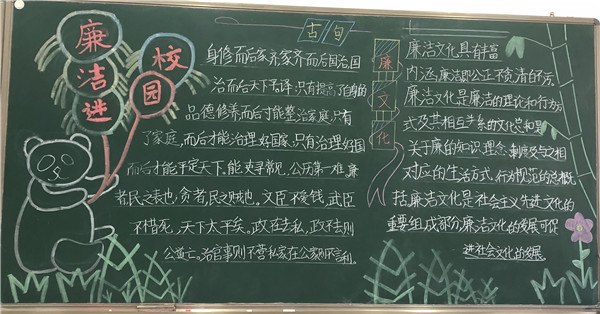 廉洁进
校园
古句
身修而后家齐家齐而后国治国
治而后天下平译:只有提高了自身的
品德修养而后才能整治家庭,只有
了家庭,而后才能治理好国家,只有治理好国
而后才能平定天下。能吏寻常见,公廉第一难,廉
者民之表也,贪者,民之贼也。文臣不爱钱,武臣
不惜死,天下太平矣。政在去私,政不去则
公道亡。治官事则不营私家在公家则不言利。
廉文化
廉洁文化具有丰富
内涵,廉洁即公正不贪清白
廉洁文化是廉洁的理论和行为方
式及其相互关系的文化总和是
关于廉的知识理念,制度及与之相
对应的生活方式,行为规范的总概
括,廉洁文化是社会主义先进文化的
重要组成部分,廉洁文化的发展可促
进社会文化的发展。